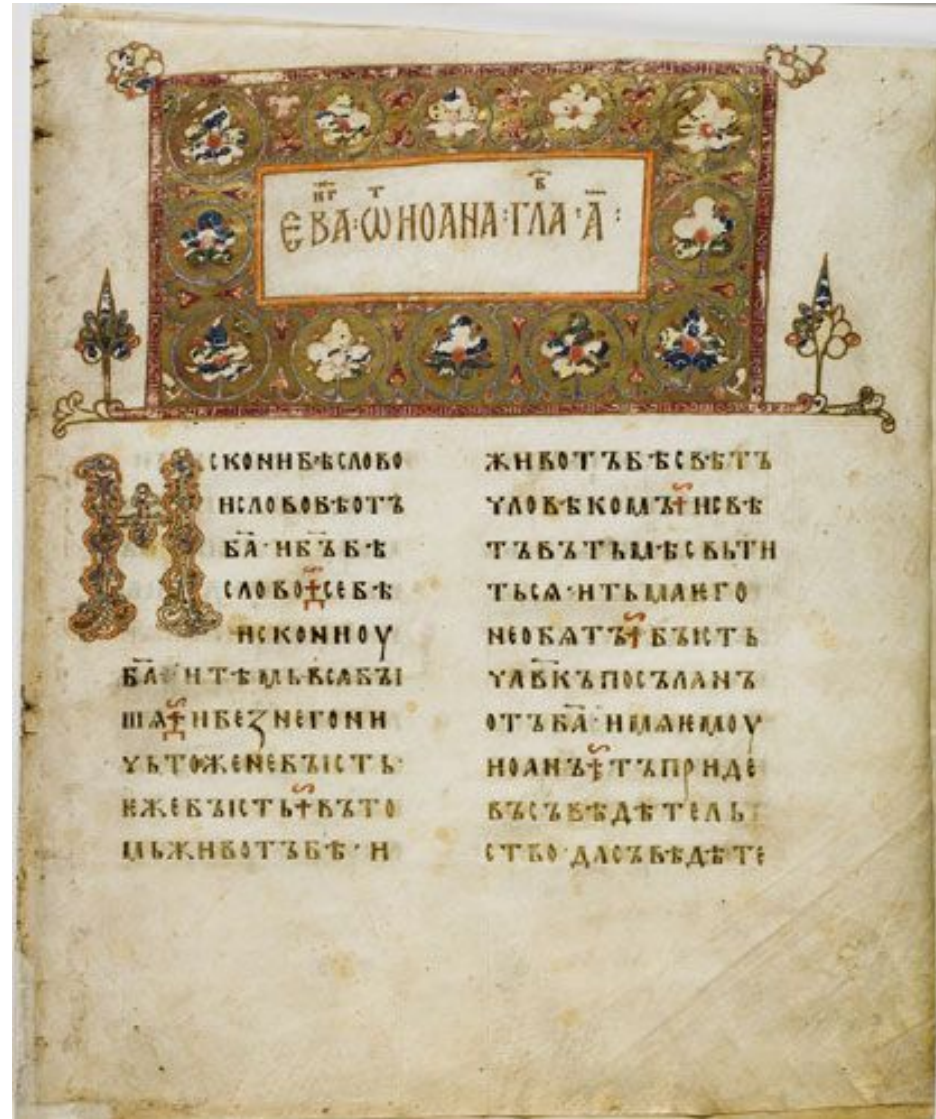 ЕВАНГ҃ · Ѿ ИОАНА · ГЛАВ҃ · А҃ :
Искони бѣ слово
и слово бѣ отъ
б҃а · и б҃ъ бѣ
слово · се бѣ
искони оу
б҃а · и тѣмь вся бы
шѧ · и без него ни
чьтоже не бысть ·
еже бысть · въ то
мь животъ бѣ · и
животъ бѣ свѣтъ
чловѣкомъ · и свѣ
тъ въ тьмѣ свьти
ться · и тьма ѥго
не обѧтъ · бысть
чл҃вкъ посъланъ
отъ б҃а · имѧ ѥмоу
иоанъ · тъ приде
въ съвѣдѣтель
ство · да съвѣдѣте